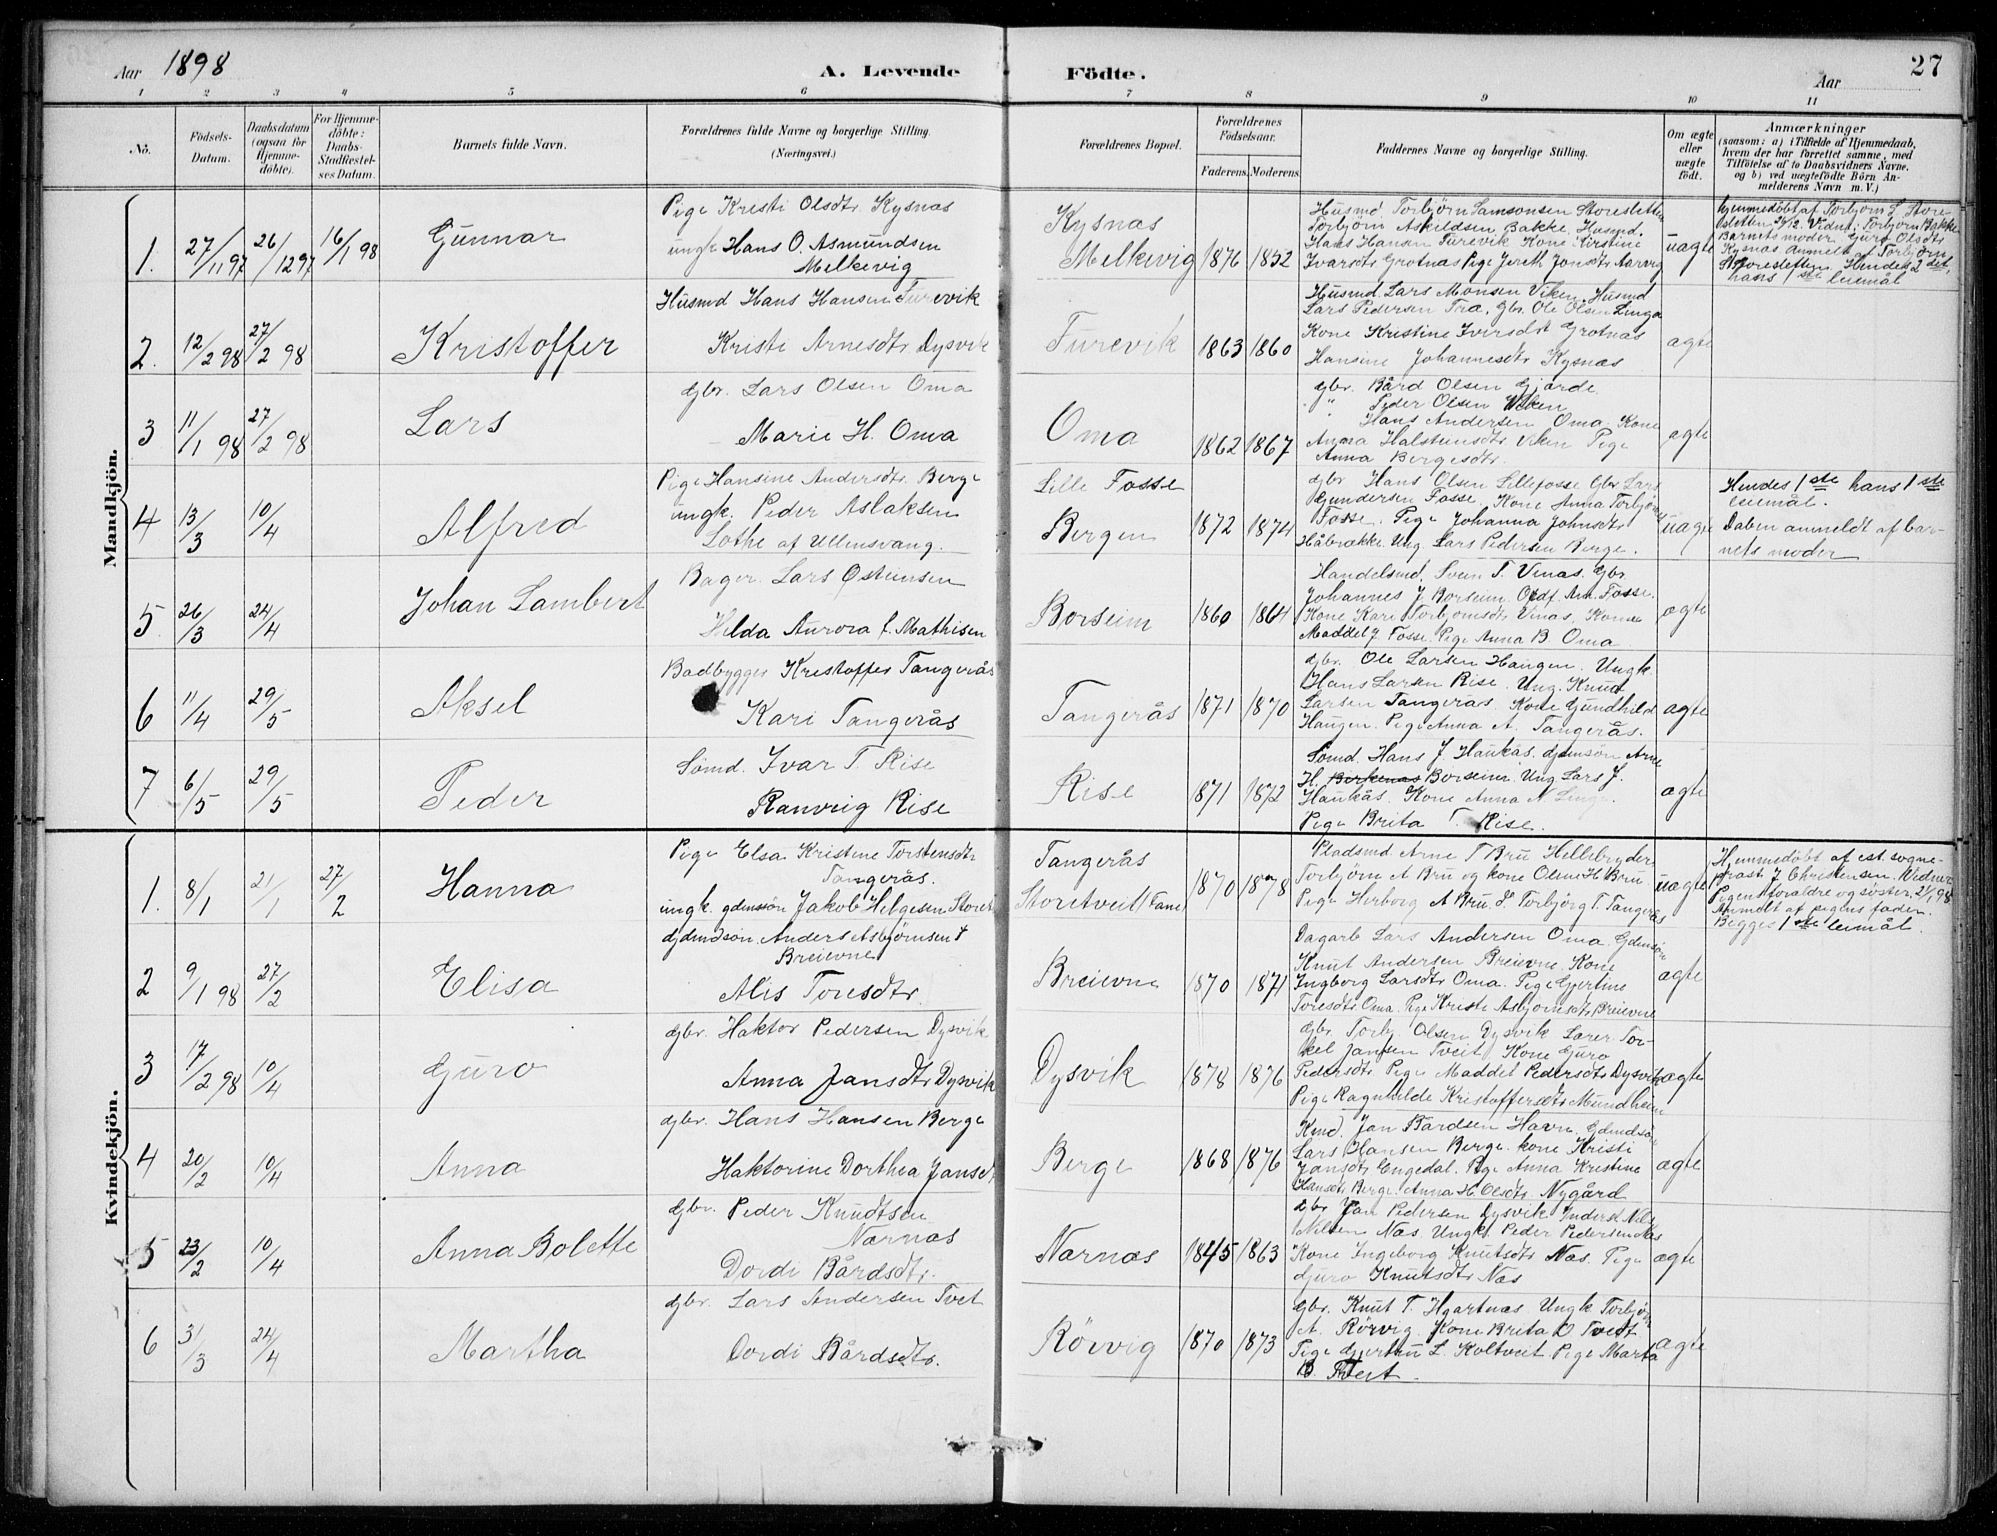 Aar 1898
A. Levende Födte.
Aar
27
1 2 3 4 5 6 7 8 9 10 11
No.
Födsels-Datum.
Daabsdatum (ogsaa for Hjemmedöbte).
For Hjemmedöbte: Daabs-Stadfæstelses Datum.
Barnets fulde Navn.
Forældrenes fulde Navne og borgerlige Stilling.
(Næringsvei.)
Forældrenes Bopæl.
Forældrenes Födselsaar.
Faderens. Moderens.
Faddernes Navne og borgerlige Stilling.
Om ægte eller uægte födt.
Anmærkninger
(saasom: a) i Tilfælde af Hjemmedaab, hvem der har forrettet samme, med Tilföielse af to Daabsvidners Navne, og b) ved uægtefödte Börn Anmelderens Navn m. V.)
Mandkjön.
1. 27/11 97 26/12 97 16/1 98 Gunnar
Pige Kristi Olsdtr. Kysnæs
ungk Hans O. Asmundsen
Melkevig
Kysnæs
Melkevig 1876 1852
Husmd Torbjörn Samsonsen Storesletten
Torbjörn Askildsen Bakke, Husmd.
Hans Hansen Turevik Kone Kirstine
Ivarsdtr Grotnæs Pige Jereth Jonsdtr Aarvig
uægte
hjemmedöbt af Torbjörn S. Store-
sletten 26/12. Vidner: Torbjörn Bakke
Barnets moder Guro Olsdtr
Kysnæs Anmelt af Torbjörn
Storesletten. Hendes 2det,
hans 1ste leiemål
2. 12/2 98 27/2 98 Kristoffer
Husmd Hans Hansen Turevik
Kristi Arnesdtr Dysvik
Turevik 1863 1860
Husmd. Lars Monsen Viken. Husmd
Lars Pedersen Træ, Gbr. Ole Olsen Linga
Kone Kristine Iversdtr Grotnæs
Hansine Johannesdtr Kysnæs
ægte
3 11/1 98 27/2 98 Lars
gbr. Lars Olsen Oma
Marie H. Oma
Oma 1862 1867
gbr. Bård Olsen Gjærde
" Peder Olsen Viken
" Hans Andersen Oma Kone
Anna Halsteinsdtr Viken Pige
Anna Bergesdtr.
ægte
4 13/3 10/4 Alfred
Pige Hansine Andersdtr. Berge
ungk. Peder Aslaksen
Lothe af Ullensvang.
Lille Fosse
Bergen 1872 1874
gbr Hans Olsen Lillefosse Gbr. Lars
Gundersen Fosse, Kone Anna Torbjörns
Fosse. Pige Johanna Johnsdtr
Håbrække. Ung. Lars Pedersen Berge.
uægte
Hendes 1ste hans 1ste
leiemål.
Daben anmeldt af bar-
nets moder
5. 26/3 24/4 Johan Lambert
Bager. Lars Østeinsen
Hilda Aurora f. Mathisen
Borseim 1860 1864
Handelsmd. Svein T. Vinæs. Gbr.
Johannes J. Borseim. Ordf. Arn. Fosse.
Kone Kari Torbjornsdtr Vinæs, Kone
Maddel J Fosse. Pige Anna B. Oma
ægte
6 11/4 29/5 Aksel
Badbygger Kristoffer Tangerås
Kari Tangerås
Tangerås 1871 1870
gbr. Ole Larsen Haugen. Ungk.
Hans Larsen Rise. Ung. Knud
Larsen Tangerås. Kone Gundhild
Haugen. Pige Anna A. Tangerås.
ægte
7 6/5 29/5 Peder
Sömd. Ivar T. Rise
Ranveig Rise
Rise 1871 1872
Sömd. Hans J. Haukås. gdmsön Arne
H. Birkenæs Borseim. Ung Lars J.
Haukås. Kone Anna N. Ling.
Pige Brita T. Rise.
ægte
Kvindekjön.
1. 8/1 21/1 27/2 Hanna
Pige Elsa Kristine Torstensdtr
Tangerås.
ungk. gdmssön Jakob Helgesen Storetv
Tangerås
Storetveit (Fane) 1870 1878
Pladsmd Arne T Bru Hellebryder
Torbjörn A Bru og kone Oline H. Bru
Pige Herborg A Bru & Torbjörg T. Tangerås
uægte
Hjemmedöbt af est. sogne-
præst J Christensen. Vidner
Pigens foræld­re og söster 21/1 98
Anmeldt af pigens fader.
Begges 1ste leiemål.
2 9/1 98 27/2 Elisa
gdmdsön. Anders Asbjörnsen
Breievne
Alis Toresdtr.
Breievne 1870 1871
Dagarb Lars Andersen Oma. Gdmsön
Knut Andersen Breievne Kone
Ingborg Larsdtr Oma. Pige Gjertine
Toresdtr Oma. Pige Kristi Asbjornsdtr Breievne
ægte
3 17/2 98 10/4 Guro
gbr. Haktor Pedersen Dysvik
Anna Jansdtr Dysvik
Dysvik 1878 1876
gbr Torbj Olsen Dysvik Lærer Tor-
kel Jansen Tveit, Kone Guro
Pedersdtr Pige Maddel Pedersdtr Dysvik
Pige Ragnhilde Kristoffersdtr Mundheim
ægte
4 20/2 10/4 Anna
gbr. Hans Hansen Berge
Haktorine Dorthea Jansd
Berge 1868 1876
Kmd. Jan Bårdsen Havn. Gdmdsön
Lars Hansen Berge. kone Kristi
Jansdtr Engedal. Pige Anna Kristine
Hansdtr Berge. Anna H. Olsdtr Nygård
ægte
5 23/2 10/4 Anna Bolette
gbr. Peder Knudtsen
Nærnæs
Dordi Bårdsdtr.
Nærnæs 1845 1863
gbr Jan Pedersen Dysvik Inderst Nils
Nilsen Næs Ungk. Peder Pedersen Næs
Kone Ingeborg Knutsdtr Næs. Pige
Guro Knutsdtr Næs
ægte
6 31/3 24/4 Martha
gbr. Lars Andersen Tveit
Dordi Bårdsdtr.
Rörvig 1870 1873
gbr. Knut T. Hjartnæs. Ungk Torbjörn
A. Rörvig. Kone Brita O Tveit
Pige Gjertru L. Koltveit Pige Marta
B. Tveit.
ægte